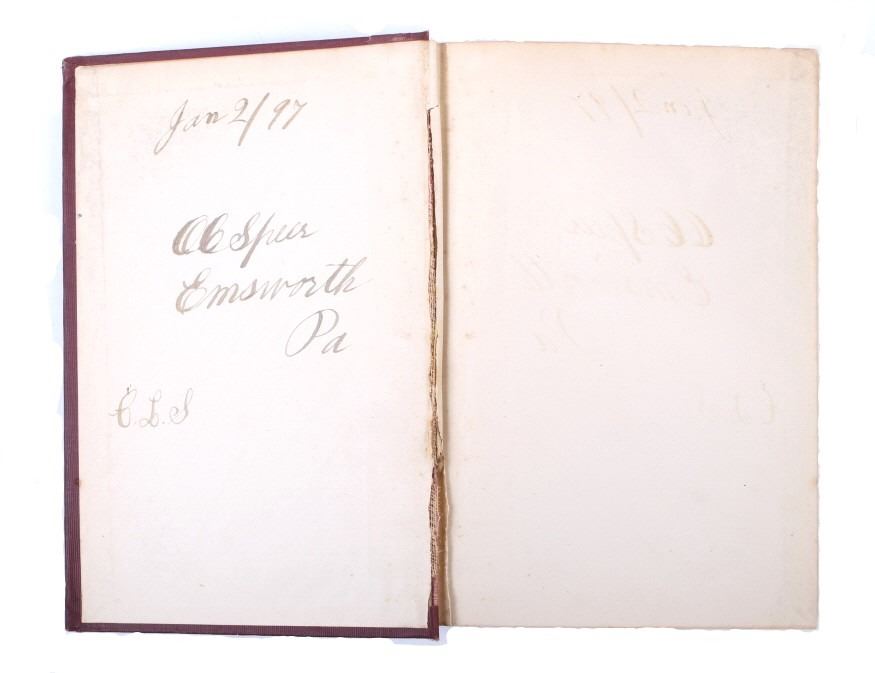 Jan 2/97
CC Speer
Emsworth
Pa
C.L.S